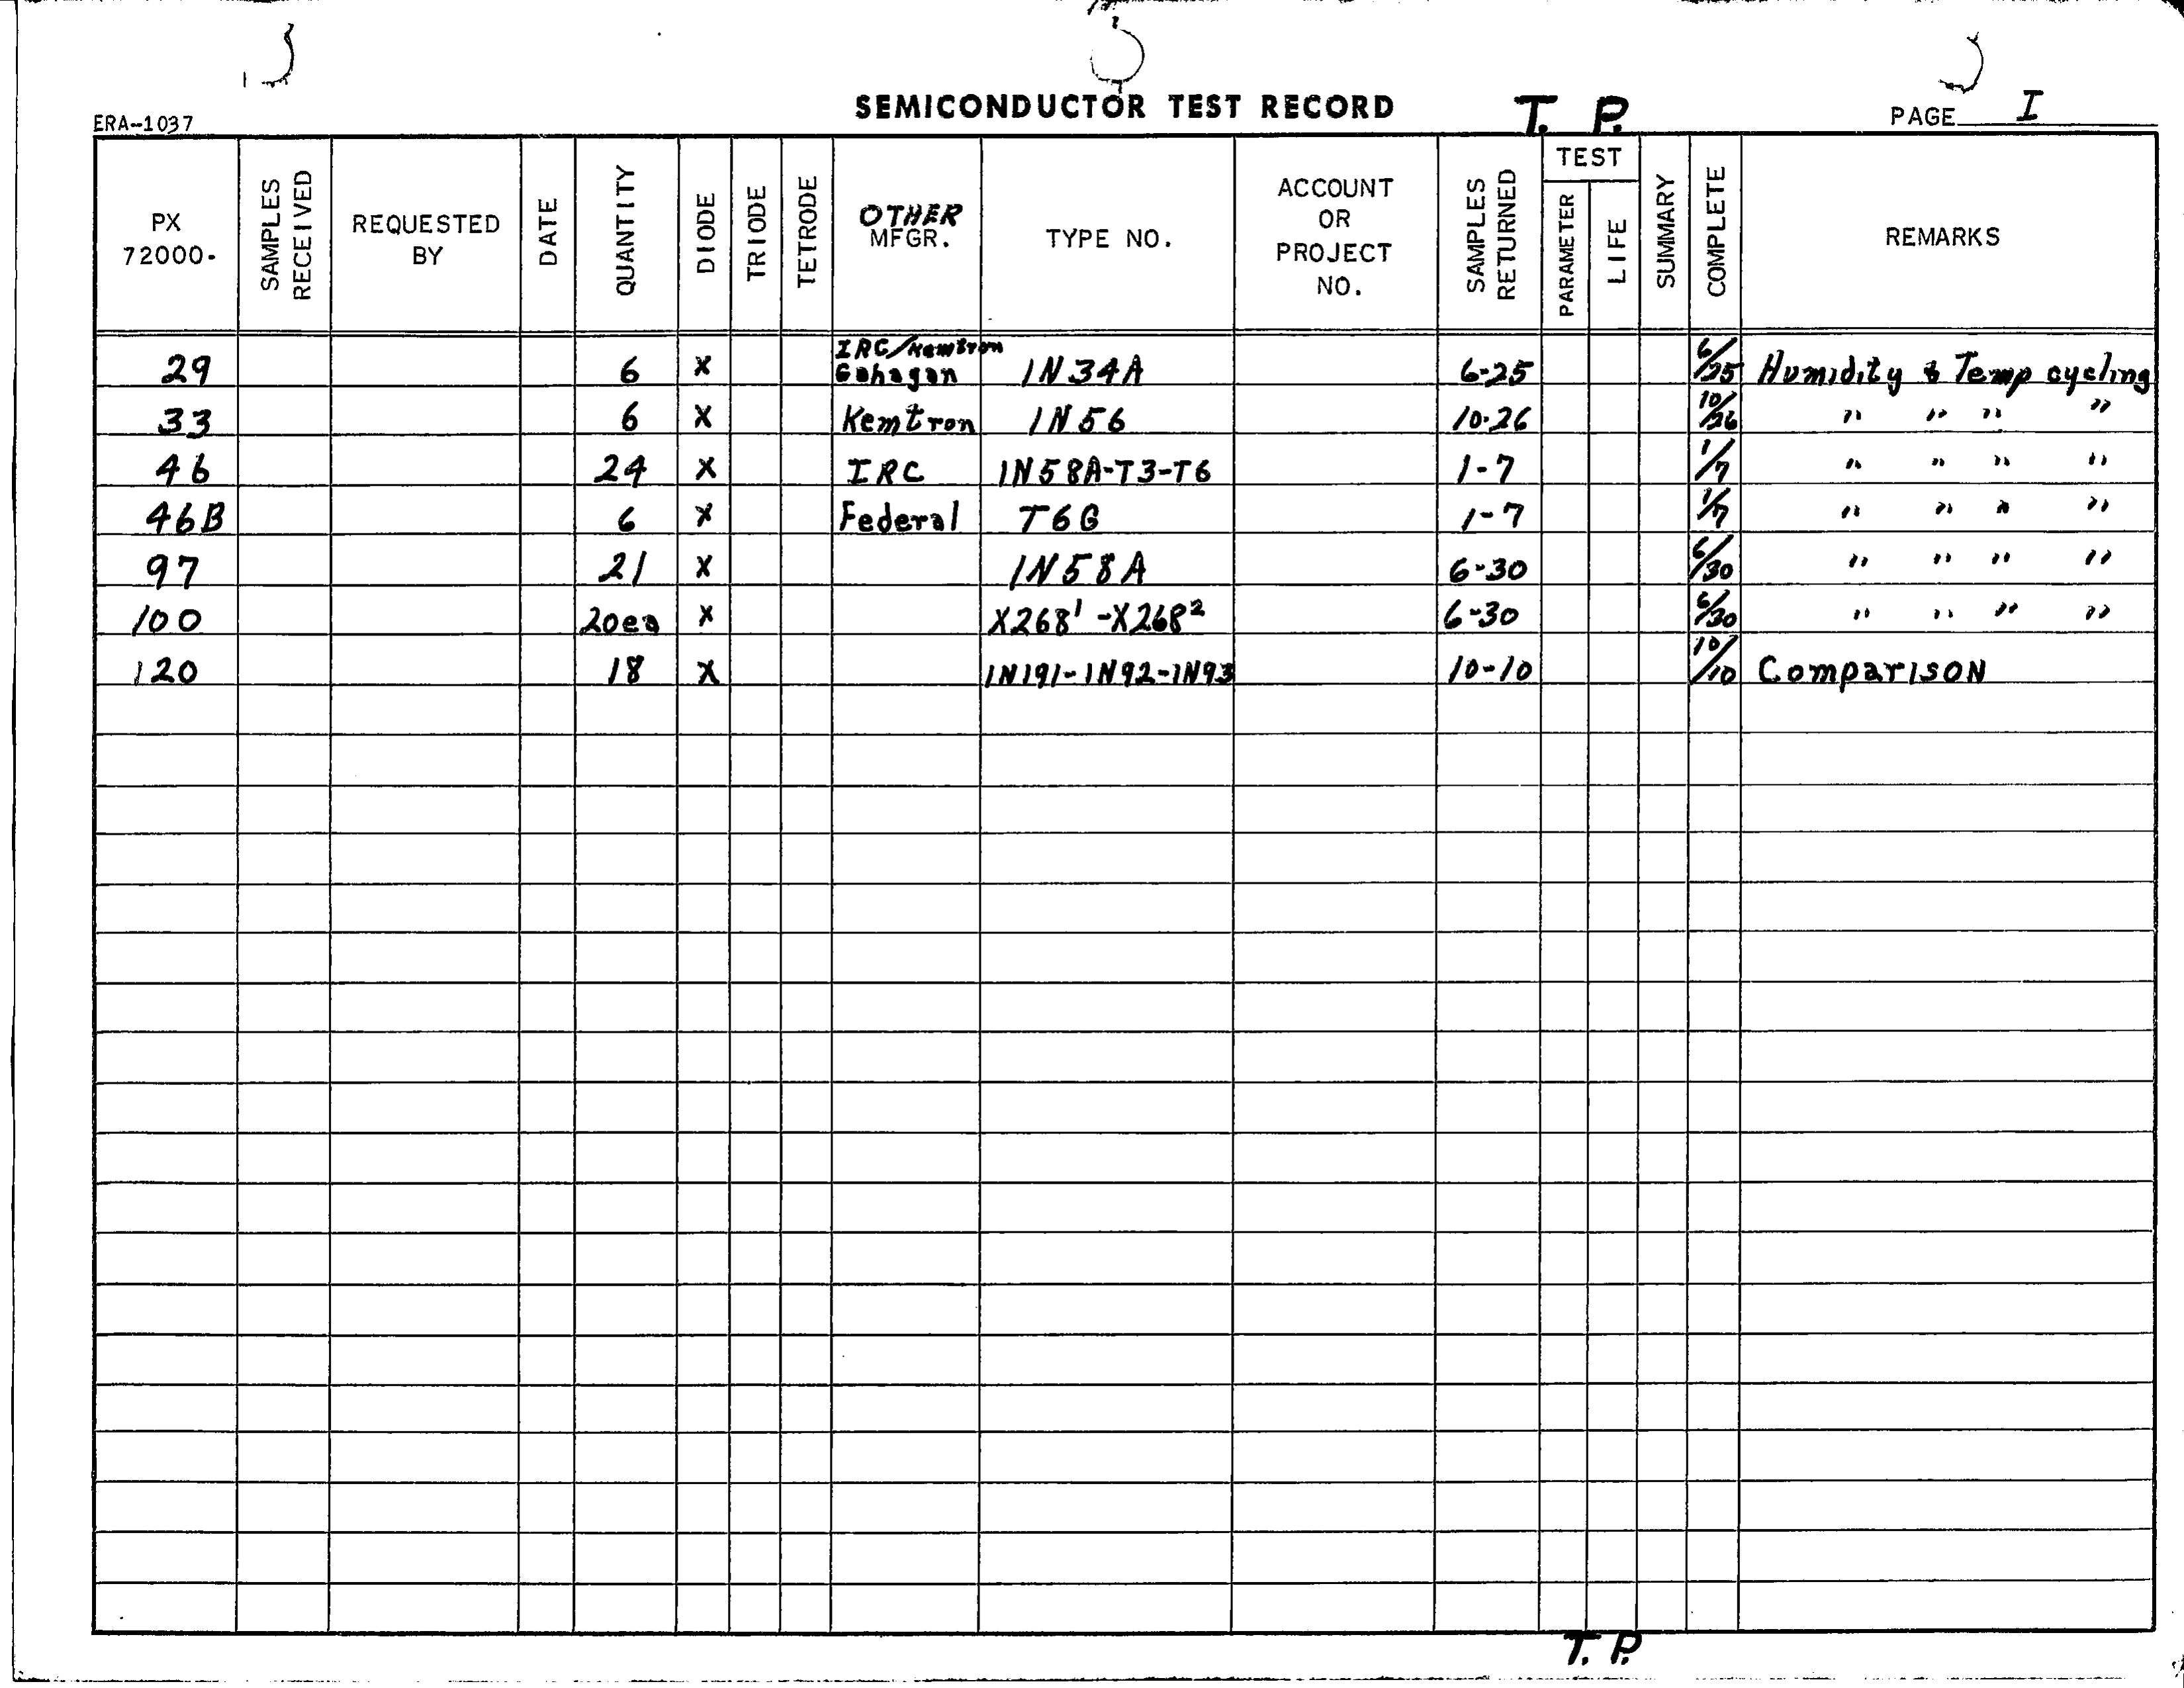 SEMICONDUCTOR TEST RECORD T. P. PAGE I
ERA-1037
PX 72000- SAMPLES RECEIVED REQUESTED BY DATE QUANTITY DIODE TRIODE TETRODE OTHER MFGR. TYPE NO. ACCOUNT OR PROJECT NO. SAMPLES RETURNED TEST PARAMETER LIFE SUMMARY COMPLETE REMARKS
29 6 X IRC/Kemtron Gahagan 1N34A 6-25 6/25 Humidity & Temp cycling
33 6 X Kemtron 1N56 10-26 10/26 " " " "
46 24 X IRC 1N58A-T3-T6 1-7 1/7 " " " "
46B 6 X Federal T6G 1-7 1/7 " " " "
97 21 X 1N58A 6-30 6/30 " " " "
100 20ea X X268¹-X268² 6-30 6/30 " " " "
120 18 X 1N191-1N92-1N93 10-10 10/10 Comparison
T. P.